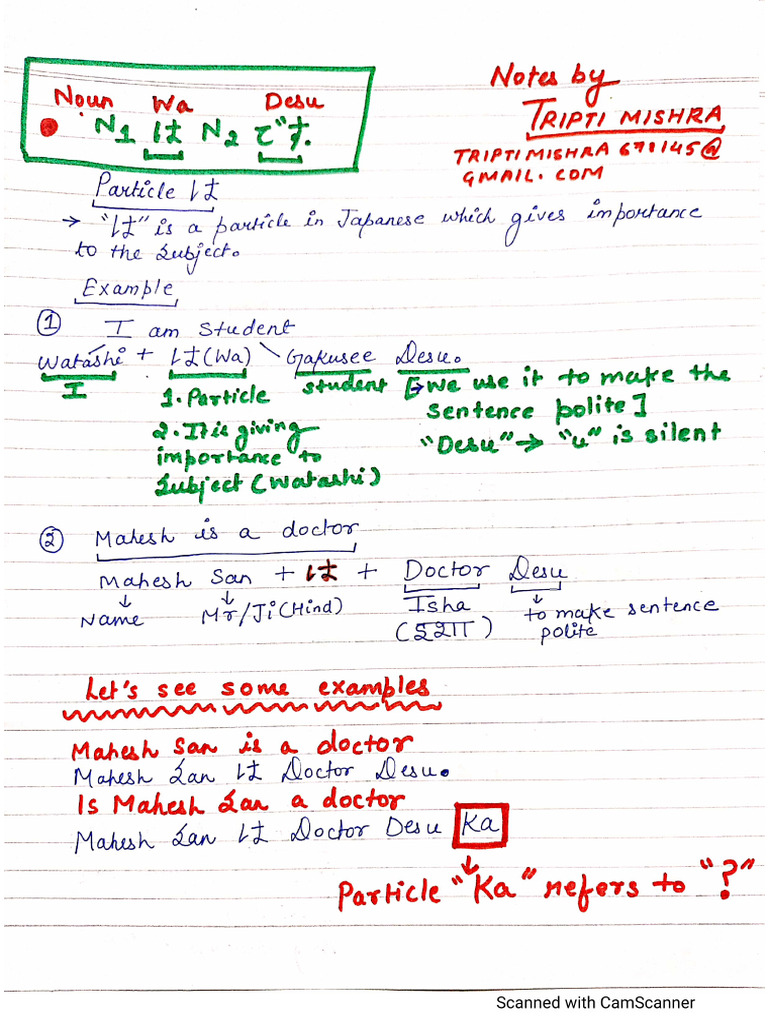 Notes by
TRIPTI MISHRA
TRIPTIMISHRA678145@
GMAIL.COM
Noun Wa Desu
N1 は N2 です.
Particle は
→ "は" is a particle in Japanese which gives importance
to the Subject.
Example
① I am Student
Watashi + は(Wa) Gakusee Desu.
I
1. Particle
2. It is giving
importance to
Subject (Watashi)
student [→ We use it to make the
sentence polite]
"Desu" → "u" is silent
② Mahesh is a doctor
Mahesh San + は + Doctor Desu
Name
Mr/Ji(Hind)
Isha
(ईशा)
to make sentence
polite
Let's see some examples
Mahesh San is a doctor
Mahesh San は Doctor Desu.
Is Mahesh San a doctor
Mahesh San は Doctor Desu Ka
Particle "Ka" refers to "?"
Scanned with CamScanner